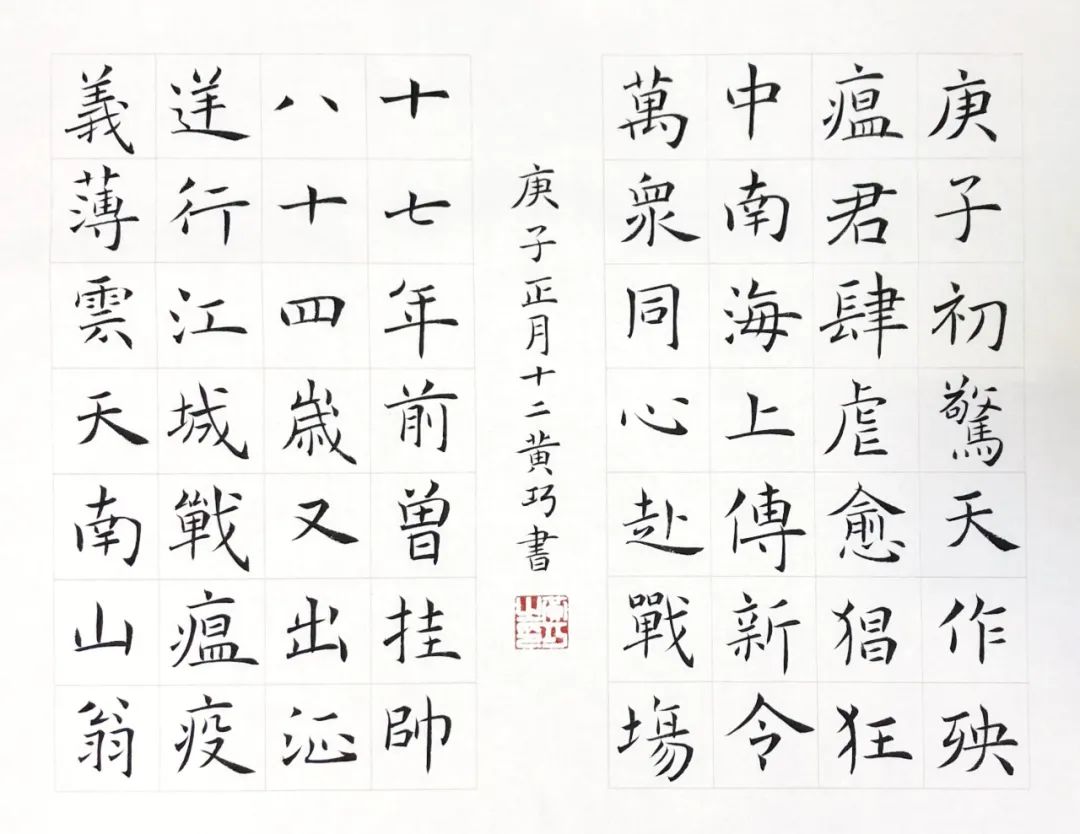 庚子初驚天作殃
瘟君肆虐愈猖狂
中南海上傳新令
萬衆同心赴戰場
庚子正月十二黄巧書
十七年前曾挂帥
八十四歲又出征
逆行江城戰瘟疫
義薄雲天南山翁